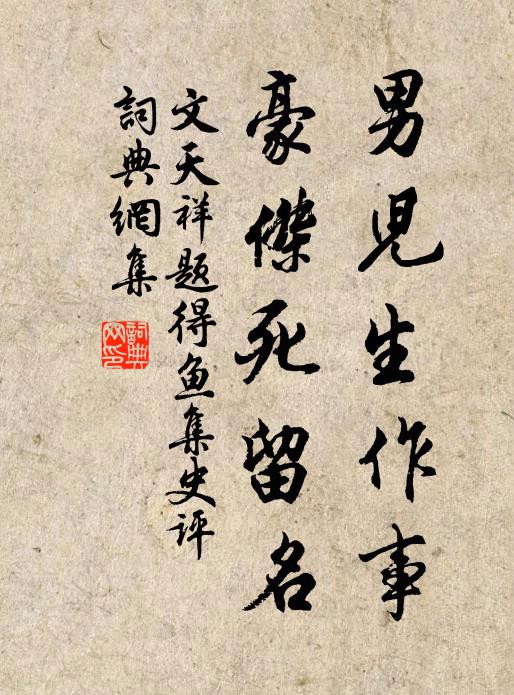 男兒生作事
豪傑死留名
文天祥題得魚集史評
詞典網集
詞典
网印